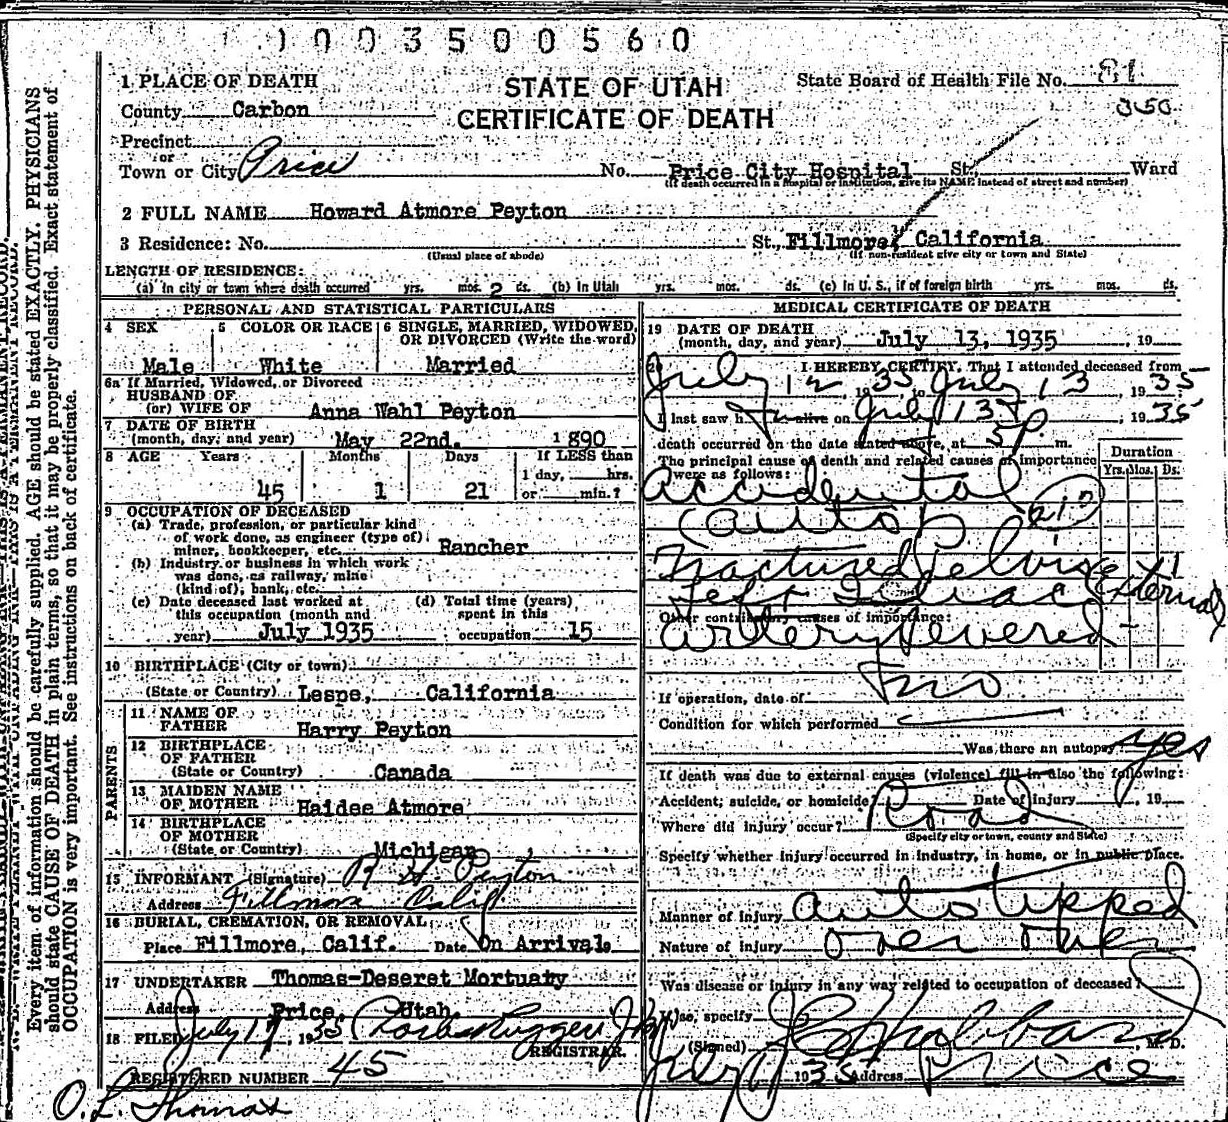 1003500560
1 PLACE OF DEATH
STATE OF UTAH
CERTIFICATE OF DEATH
State Board of Health File No. 81
350
County Carbon
Precinct
or
Town or City Price No. Price City Hospital St., Ward
(If death occurred in a hospital or institution, give its NAME instead of street and number)
2 FULL NAME Howard Atmore Peyton
3 Residence: No. St., Fillmore, California
(Usual place of abode) (If non-resident give city or town and State)
LENGTH OF RESIDENCE:
(a) In city or town where death occurred yrs. mos. 2 ds. (b) In Utah yrs. mos. ds. (c) In U. S., if of foreign birth yrs. mos. ds.
PERSONAL AND STATISTICAL PARTICULARS
4 SEX 5 COLOR OR RACE 6 SINGLE, MARRIED, WIDOWED,
OR DIVORCED (Write the word)
Male White Married
6a If Married, Widowed, or Divorced
HUSBAND OF
(or) WIFE OF Anna Wahl Peyton
7 DATE OF BIRTH
(month, day, and year) May 22nd. 1890
8 AGE Years Months Days If LESS than
1 day, hrs.
45 1 21 or min.?
9 OCCUPATION OF DECEASED
(a) Trade, profession, or particular kind
of work done, as engineer (type of)
miner, bookkeeper, etc. Rancher
(b) Industry or business in which work
was done, as railway, mine
(kind of), bank, etc.
(c) Date deceased last worked at (d) Total time (years)
this occupation (month and spent in this
year) July 1935 occupation 15
10 BIRTHPLACE (City or town)
(State or Country) Lespe, California
PARENTS
11 NAME OF
FATHER Harry Peyton
12 BIRTHPLACE
OF FATHER
(State or Country) Canada
13 MAIDEN NAME
OF MOTHER Haidee Atmore
14 BIRTHPLACE
OF MOTHER
(State or Country) Michigan
15 INFORMANT (Signature) R H Peyton
Address Fillmore Calif
16 BURIAL, CREMATION, OR REMOVAL,
Place Fillmore, Calif. Date On Arrival
17 UNDERTAKER Thomas-Deseret Mortuary
Address Price, Utah
18 FILED July 17, 1935
REGISTRAR.
REGISTERED NUMBER 45
O. L. Thomas
MEDICAL CERTIFICATE OF DEATH
19 DATE OF DEATH
(month, day, and year) July 13, 1935, 19
20 I HEREBY CERTIFY, That I attended deceased from
July 12, 1935 to July 13, 1935
I last saw h alive on July 13, 1935
death occurred on the date stated above, at 5 P. m.
The principal cause of death and related causes of importance
were as follows:
Duration
Yrs. Mos. Ds.
Accidental
(auto) 210
Fractured Pelvis
Left Iliac External
Other contributory causes of importance:
Artery severed
If operation, date of no
Condition for which performed
Was there an autopsy yes
If death was due to external causes (violence) fill in also the following:
Accident, suicide, or homicide Date of injury , 19
Where did injury occur? Road
(Specify city or town, county and State)
Specify whether injury occurred in industry, in home, or in public place.
Manner of injury auto tipped
Nature of injury over
Was disease or injury in any way related to occupation of deceased?
If so, specify
(Signed) J C Hubbard, M. D.
1935 Address Price
Every item of information should be carefully supplied. AGE should be stated EXACTLY. PHYSICIANS
should state CAUSE OF DEATH in plain terms, so that it may be properly classified. Exact statement of
OCCUPATION is very important. See instructions on back of certificate.